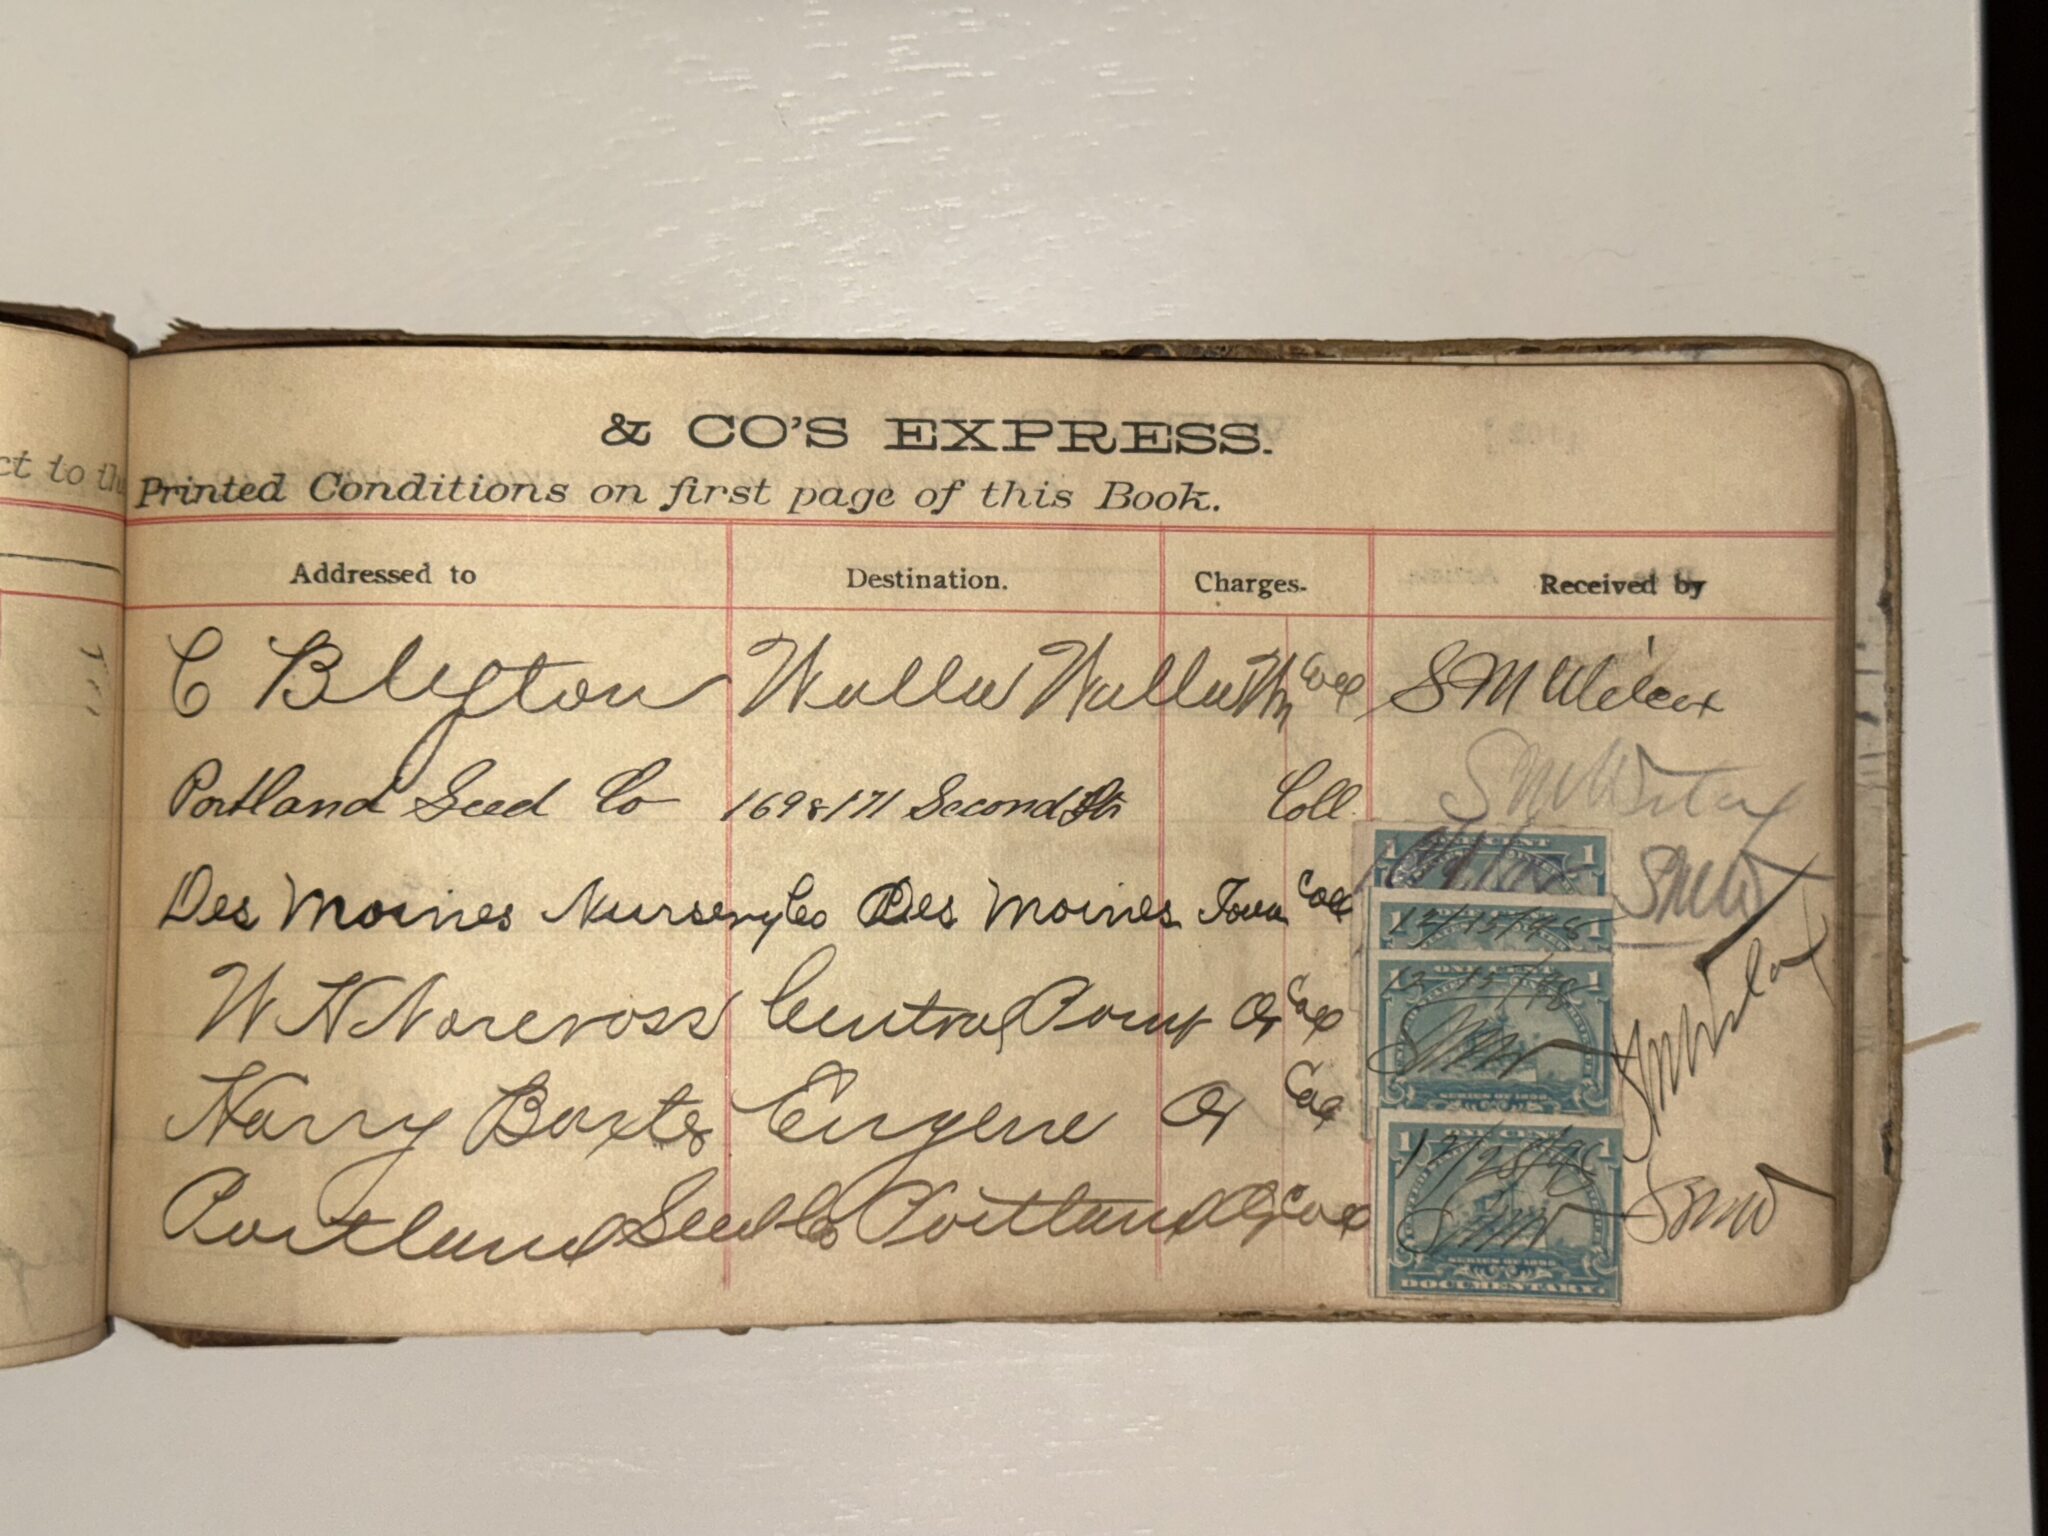 ct to the
& CO'S EXPRESS.
Printed Conditions on first page of this Book.
Addressed to Destination. Charges. Received by
C Blyton Walla Walla Wn Col S M Wilcox
Portland Seed Co 169 & 171 Second St Coll.
Des Moines Nursery Co Des Moines Iowa Coll SMW
W H Norcross Central Point Or Col
Harry Baxter Eugene Or Col
Portland Seed Co Portland Or Col SMW
1 ONE CENT 1
12/15/98
1 ONE CENT 1
12/15/98
SMW
SERIES OF 1898
1 ONE CENT
12/28/98
SMW
SERIES OF 1898
DOCUMENTARY.